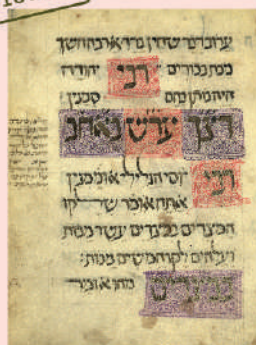 ערוב דבר שחין ברד ארבה חשך
מכת בכורים רבי יהודה
היה נותן בהם סמנין
דצך עדש באחב
רבי יוסי הגלילי אומ מנין
אתה אומר שלקו
המצרים במצרים עשר מכות
ועל הים לקו חמשים מכות
במצרים מהו אומר